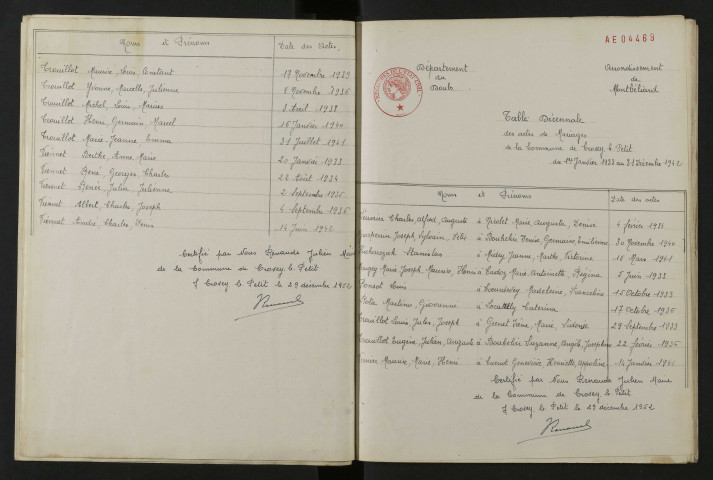 Noms et Prénoms Date des Actes.
Trouillot Maurice, Louis, Constant 18 Novembre 1929
Trouillot Yvonne, Marcelle, Julienne 6 Novembre 1936
Trouillot Michel, Louis, Marius 8 Avril 1938
Trouillot Henri, Germain, Marcel 16 Janvier 1940
Trouillot Marie, Jeanne, Emma 31 Juillet 1941
Viennet Berthe, Anne, Marie 20 Janvier 1933
Viennet René, Georges, Charles 22 Août 1934
Viennet Julien 2 Septembre 1935
Viennet Albert, Charles, Joseph 4 Septembre 1936
Viennet André, Charles 14 Juin 1942
Certifié par Nous Renaude Julien Maire
de la Commune de Crosey le Petit
A Crosey le Petit le 29 décembre 1952
AE 04468
Département
du
Doubs
Arrondissement
de
Montbéliard
Table Décennale
des actes de Mariages
de la Commune de Crosey le Petit
du 1er Janvier 1933 au 31 Décembre 1942
Noms et Prénoms Date des actes
Charles, Alfred, Auguste à Marie, Auguste, Denise 4 février 1936
Joseph, Sylvain à Bouhélier Denise, Germaine, Emilienne 30 Novembre 1940
Stanislas à Jeanne, Marthe, Victorine 10 Mars 1941
Marie Joseph, Maurice, Henri à Marie, Antoinette, Régine 5 Juin 1933
Louis à Madeleine, Franceline 15 Octobre 1933
Martino, Giovanne à Caterina 17 Octobre 1936
Trouillot Louis, Jules, Joseph à Irène, Marie 29 Septembre 1933
Trouillot Eugène, Julien, August à Bouhélier Suzanne, Angèle, Joséphine 22 février 1936
Maurice, Marie, Henri à Cuenot Geneviève, Henriette, Appoline 14 Janvier
Certifié par Nous Renaude Julien Maire
de la Commune de Crosey le Petit
A Crosey le Petit le 29 décembre 1952